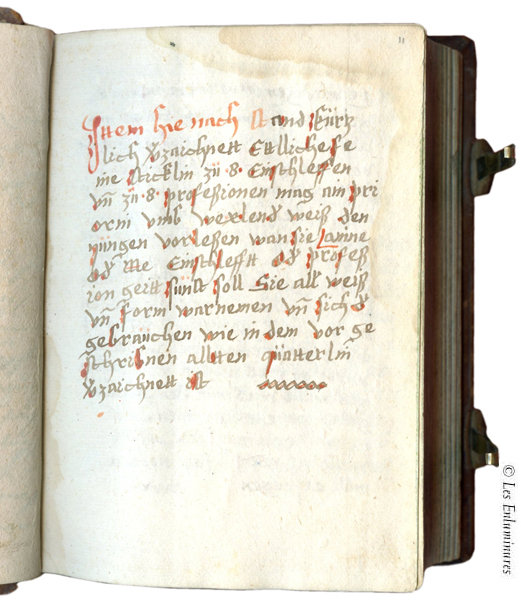 11
Ittem hie nach stand kürtz
lich v̄zaichnett Ettlich esse
me sticklin zü · 8 · Einschleffen
vn̄ zü · 8 · professionen mag ain pri
orin vmb wexlend weiß den
jüngen vorleßen wan sie
od̄ Einschlefft od̄ profeß
ion geitt sünst soll Sie all weiß
vn̄ form warnemen vn̄ sich d̄
gebraüchen wie in dem vor ge
schribnen alltten quatterlin
v̄zaichnett ist
© Les Enluminures